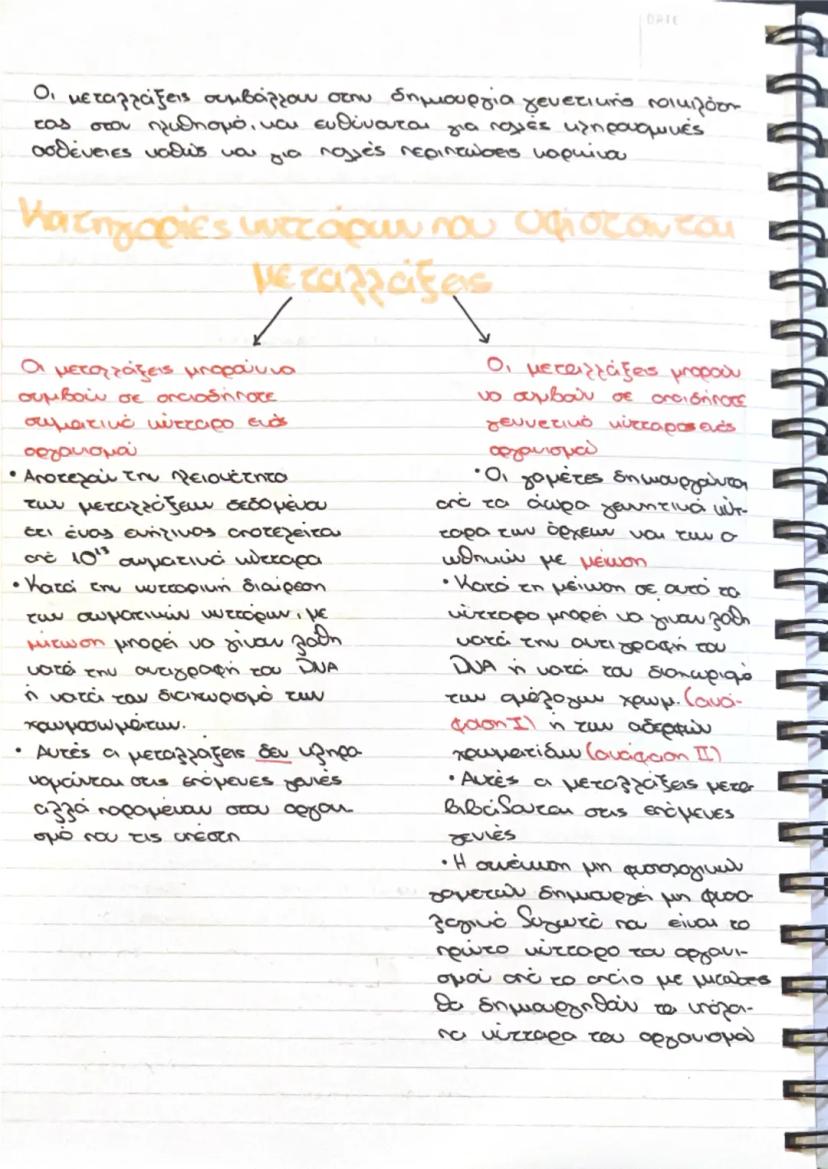 DATE
Οι μεταλλάξεις συμβάλλουν στην δημιουργία γενετικής ποικιλότη-
τας στον πληθυσμό, και ευθύνονται για πολλές κληρονομικές
ασθένειες καθώς και για πολλές περιπτώσεις καρκίνου
Κατηγορίες κυττάρων που υφίστανται
μεταλλάξεις
Οι μεταλλάξεις μπορούν να
συμβούν σε οποιοδήποτε
σωματικό κύτταρο ενός
οργανισμού
• Αποτελούν την πλειονότητα
των μεταλλάξεων δεδομένου
ότι ένας ενήλικας αποτελείται
από 10¹³ σωματικά κύτταρα
• Κατά την κυτταρική διαίρεση
των σωματικών κυττάρων, με
μίτωση μπορεί να γίνουν λάθη
κατά την αντιγραφή του DNA
ή κατά τον διαχωρισμό των
χρωμοσωμάτων.
• Αυτές οι μεταλλάξεις δεν κληρο-
νομούνται στις επόμενες γενιές
αλλά παραμένουν στον οργανι-
σμό που τις υπέστη
Οι μεταλλάξεις μπορούν
να συμβούν σε οποιδήποτε
γεννετικό κύτταρο ενός
οργανισμού
• Οι γαμέτες δημιουργούνται
από τα άωρα γεννητικά κύτ-
ταρα των όρχεων και των ω
ωθηκών με μείωση
• Κατά τη μείωση σε αυτά τα
κύτταρα μπορεί να γίνουν λάθη
κατά την αντιγραφή του
DNA ή κατά τον διαχωρισμό
των ομόλογων χρωμ. (ανά-
φαση Ι) ή των αδερφών
χρωματίδων (ανάφαση ΙΙ)
• Αυτές οι μεταλλάξεις μετα
βιβάζονται στις επόμενες
γενιές
• Η σύζευξη μη φυσιολογικών
γαμετών δημιουργεί μη φυσιο-
λογικό ζυγωτό που είναι το
πρώτο κύτταρο του οργανι-
σμού από το οποίο με μιτώσεις
θα δημιουργηθούν τα υπόλοι-
πα κύτταρα του οργανισμού